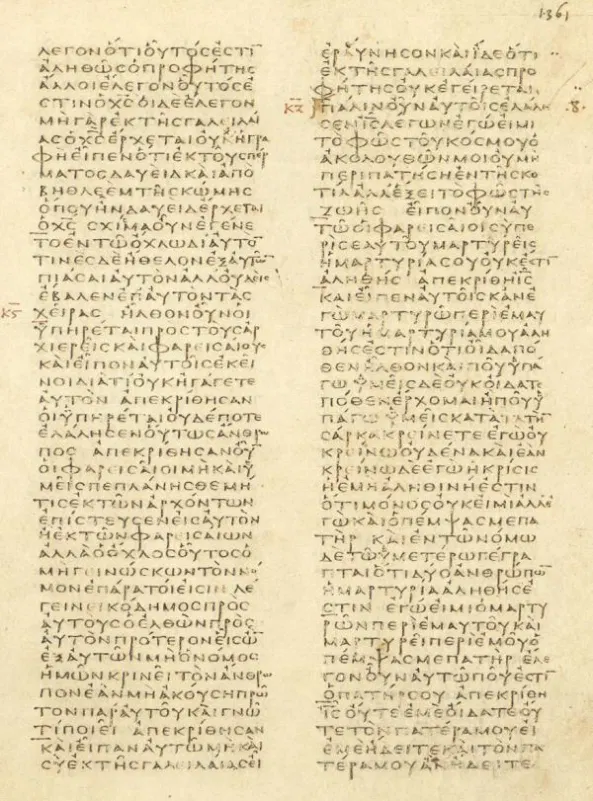 1361
ΛΕΓΟΝΟΤΙΟΥΤΟΣΕΣΤΙ
ΑΛΗΘΩΣΟΠΡΟΦΗΤΗΣ
ΑΛΛΟΙΕΛΕΓΟΝΟΥΤΟΣΕ
ΣΤΙΝΟΧΣΟΙΔΕΕΛΕΓΟΝ
ΜΗΓΑΡΕΚΤΗΣΓΑΛΕΙΛΑΙ
ΑΣΟΧΣΕΡΧΕΤΑΙΟΥΧΗΓΡΑ
ΦΗΕΙΠΕΝΟΤΙΕΚΤΟΥΣΠΕΡ
ΜΑΤΟΣΔΑΥΕΙΔΚΑΙΑΠΟ
ΒΗΘΛΕΕΜΤΗΣΚΩΜΗΣ
ΟΠΟΥΗΝΔΑΥΕΙΔΕΡΧΕΤΑΙ
ΟΧΣ ΣΧΙΣΜΑΟΥΝΕΓΕΝΕ
ΤΟΕΝΤΩΟΧΛΩΔΙΑΥΤΟ
ΤΙΝΕΣΔΕΗΘΕΛΟΝΕΞΑΥΤΩ
ΠΙΑΣΑΙΑΥΤΟΝΑΛΛΟΥΔΕΙΣ
ΕΒΑΛΕΝΕΠΑΥΤΟΝΤΑΣ
Κς ΧΕΙΡΑΣ ΗΛΘΟΝΟΥΝΟΙ
ΥΠΗΡΕΤΑΙΠΡΟΣΤΟΥΣΑΡ
ΧΙΕΡΕΙΣΚΑΙΦΑΡΕΙΣΑΙΟΥΣ
ΚΑΙΕΙΠΟΝΑΥΤΟΙΣΕΚΕΙ
ΝΟΙΔΙΑΤΙΟΥΚΗΓΑΓΕΤΕ
ΑΥΤΟΝ ΑΠΕΚΡΙΘΗΣΑΝ
ΟΙΥΠΗΡΕΤΑΙΟΥΔΕΠΟΤΕ
ΕΛΑΛΗΣΕΝΟΥΤΩΣΑΝΘΡΩ
ΠΟΣ ΑΠΕΚΡΙΘΗΣΑΝΟΥ
ΟΙΦΑΡΕΙΣΑΙΟΙΜΗΚΑΙΥ
ΜΕΙΣΠΕΠΛΑΝΗΣΘΕΜΗ
ΤΙΣΕΚΤΩΝΑΡΧΟΝΤΩΝ
ΕΠΙΣΤΕΥΣΕΝΕΙΣΑΥΤΟΝ
ΗΕΚΤΩΝΦΑΡΕΙΣΑΙΩΝ
ΑΛΛΑΟΟΧΛΟΣΟΥΤΟΣΟ
ΜΗΓΕΙΝΩΣΚΩΝΤΟΝΝΟ
ΜΟΝΕΠΑΡΑΤΟΙΕΙΣΙΝ ΛΕ
ΓΕΙΝΕΙΚΟΔΗΜΟΣΠΡΟΣ
ΑΥΤΟΥΣΟΕΛΘΩΝΠΡΟΣ
ΑΥΤΟΝΠΡΟΤΕΡΟΝΕΙΣΩ
ΕΞΑΥΤΩΝΜΗΟΝΟΜΟΣ
ΗΜΩΝΚΡΙΝΕΙΤΟΝΑΝΘΡΩ
ΠΟΝΕΑΝΜΗΑΚΟΥΣΗΠΡΩ
ΤΟΝΠΑΡΑΥΤΟΥΚΑΙΓΝΩ
ΤΙΠΟΙΕΙ ΑΠΕΚΡΙΘΗΣΑΝ
ΚΑΙΕΙΠΑΝΑΥΤΩΜΗΚΑΙ
ΣΥΕΚΤΗΣΓΑΛΕΙΛΑΙΑΣΕΙ
ΕΡΑΥΝΗΣΟΝΚΑΙΙΔΕΟΤΙ
ΕΚΤΗΣΓΑΛΕΙΛΑΙΑΣΠΡΟ
ΦΗΤΗΣΟΥΚΕΓΕΙΡΕΤΑΙ
ΚΖ ΠΑΛΙΝΟΥΝΑΥΤΟΙΣΕΛΑΛΗ
ΣΕΝΙΣΛΕΓΩΝΕΓΩΕΙΜΙ
ΤΟΦΩΣΤΟΥΚΟΣΜΟΥΟ
ΑΚΟΛΟΥΘΩΝΜΟΙΟΥΜΗ
ΠΕΡΙΠΑΤΗΣΗΕΝΤΗΣΚΟ
ΤΙΑΑΛΛΕΞΕΙΤΟΦΩΣΤΗΣ
ΖΩΗΣ ΕΙΠΟΝΟΥΝΑΥ
ΤΩΟΙΦΑΡΕΙΣΑΙΟΙΣΥΠΕ
ΡΙΣΕΑΥΤΟΥΜΑΡΤΥΡΕΙΣ
ΗΜΑΡΤΥΡΙΑΣΟΥΟΥΚΕΣΤΙ
ΑΛΗΘΗΣ ΑΠΕΚΡΙΘΗΙΣ
ΚΑΙΕΙΠΕΝΑΥΤΟΙΣΚΑΝΕ
ΓΩΜΑΡΤΥΡΩΠΕΡΙΕΜΑΥ
ΤΟΥΗΜΑΡΤΥΡΙΑΜΟΥΑΛΗ
ΘΗΣΕΣΤΙΝΟΤΙΟΙΔΑΠΟ
ΘΕΝΗΛΘΟΝΚΑΙΠΟΥΥΠΑ
ΓΩ ΥΜΕΙΣΔΕΟΥΚΟΙΔΑΤΕ
ΠΟΘΕΝΕΡΧΟΜΑΙΗΠΟΥΥ
ΠΑΓΩ ΥΜΕΙΣΚΑΤΑΤΗ
ΣΑΡΚΑΚΡΕΙΝΕΤΕΕΓΩΟΥ
ΚΡΕΙΝΩΟΥΔΕΝΑΚΑΙΕΑΝ
ΚΡΕΙΝΩΔΕΕΓΩΗΚΡΙΣΙΣ
ΗΕΜΗΑΛΗΘΙΝΗΕΣΤΙΝ
ΟΤΙΜΟΝΟΣΟΥΚΕΙΜΙΑΛΛΕ
ΓΩΚΑΙΟΠΕΜΨΑΣΜΕΠΑ
ΤΗΡ ΚΑΙΕΝΤΩΝΟΜΩ
ΔΕΤΩΥΜΕΤΕΡΩΓΕΓΡΑ
ΠΤΑΙΟΤΙΔΥΟΑΝΘΡΩΠΩ
ΗΜΑΡΤΥΡΙΑΑΛΗΘΗΣΕ
ΣΤΙΝ ΕΓΩΕΙΜΙΟΜΑΡΤΥ
ΡΩΝΠΕΡΙΕΜΑΥΤΟΥΚΑΙ
ΜΑΡΤΥΡΕΙΠΕΡΙΕΜΟΥΟ
ΠΕΜΨΑΣΜΕΠΑΤΗΡ ΕΛΕ
ΓΟΝΟΥΝΑΥΤΩΠΟΥΕΣΤΙ
ΟΠΑΤΗΡΣΟΥ ΑΠΕΚΡΙΘΗ
ΙΣΟΥΤΕΕΜΕΟΙΔΑΤΕΟΥ
ΤΕΤΟΝΠΑΤΕΡΑΜΟΥΕΙ
ΕΜΕΗΔΕΙΤΕΚΑΙΤΟΝΠΑ
ΤΕΡΑΜΟΥΑΝΗΔΕΙΤΕ